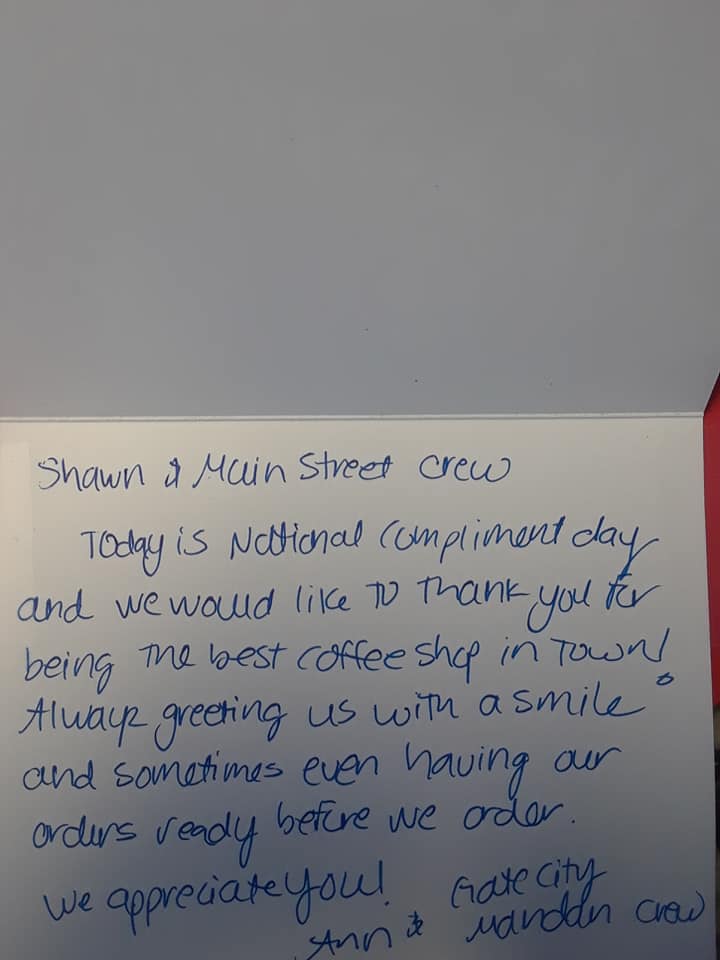 Shawn & Main Street crew
Today is National Compliment day
and we would like to thank you for
being the best coffee shop in town!
Always greeting us with a smile
and sometimes even having our
orders ready before we order.
We appreciate you! Gate City
Ann & Mandan Crew